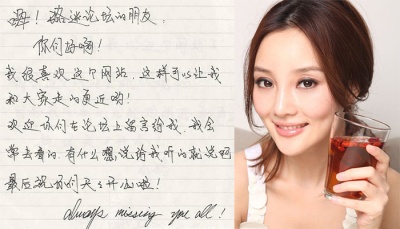 嘿！璐迷论坛的朋友，
你们好啊！
我很喜欢这个网站，这样可以让我
和大家走的更近哟！
欢迎你们在论坛上留言给我，我会
常去看的，有什么想说给我听的就说吧
最后祝你们天天开心啦！
always missing you all！